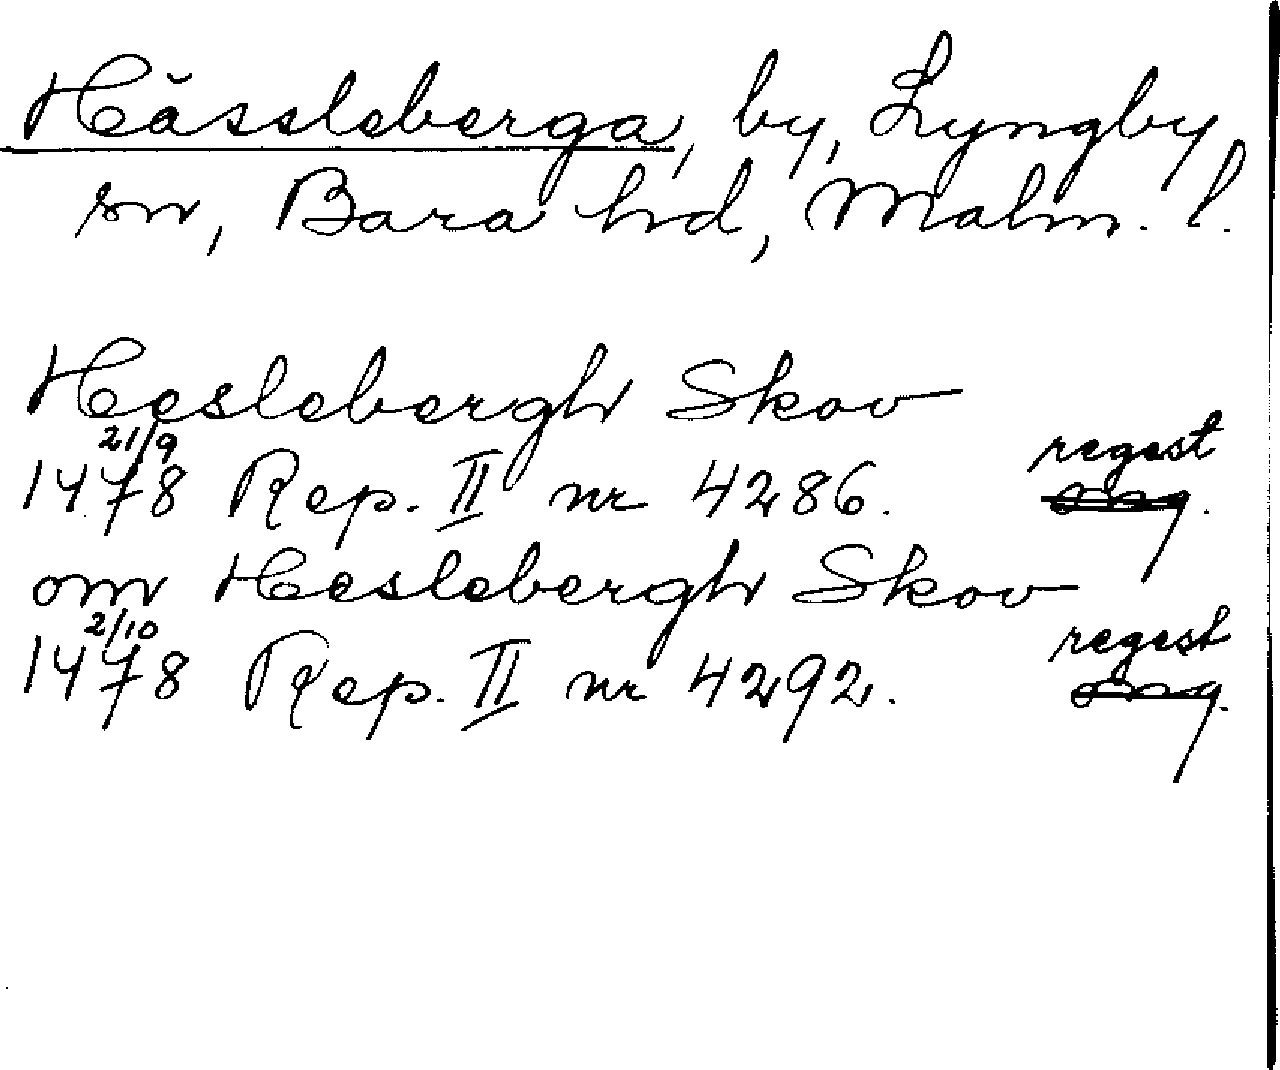 Hässleberga, by, Lyngby
sn, Bara hd, Malm. l.
Heslebergh Skov
21/9
1478 Rep. II nr 4286. regest
om Heslebergh Skov
2/10
1478 Rep. II nr 4292. regest